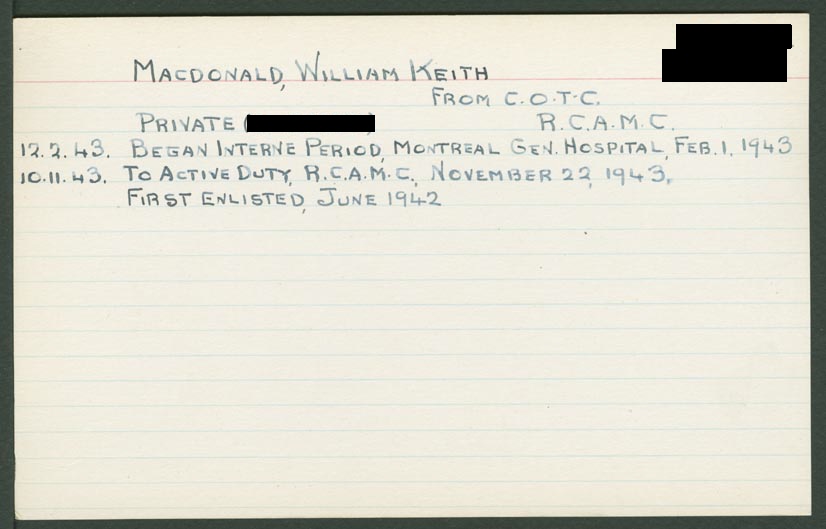 MACDONALD, WILLIAM KEITH
FROM C.O.T.C.
PRIVATE ( ) R.C.A.M.C.
12.2.43. BEGAN INTERNE PERIOD, MONTREAL GEN. HOSPITAL, FEB. 1, 1943
10.11.43. TO ACTIVE DUTY, R.C.A.M.C., NOVEMBER 22, 1943.
FIRST ENLISTED, JUNE 1942